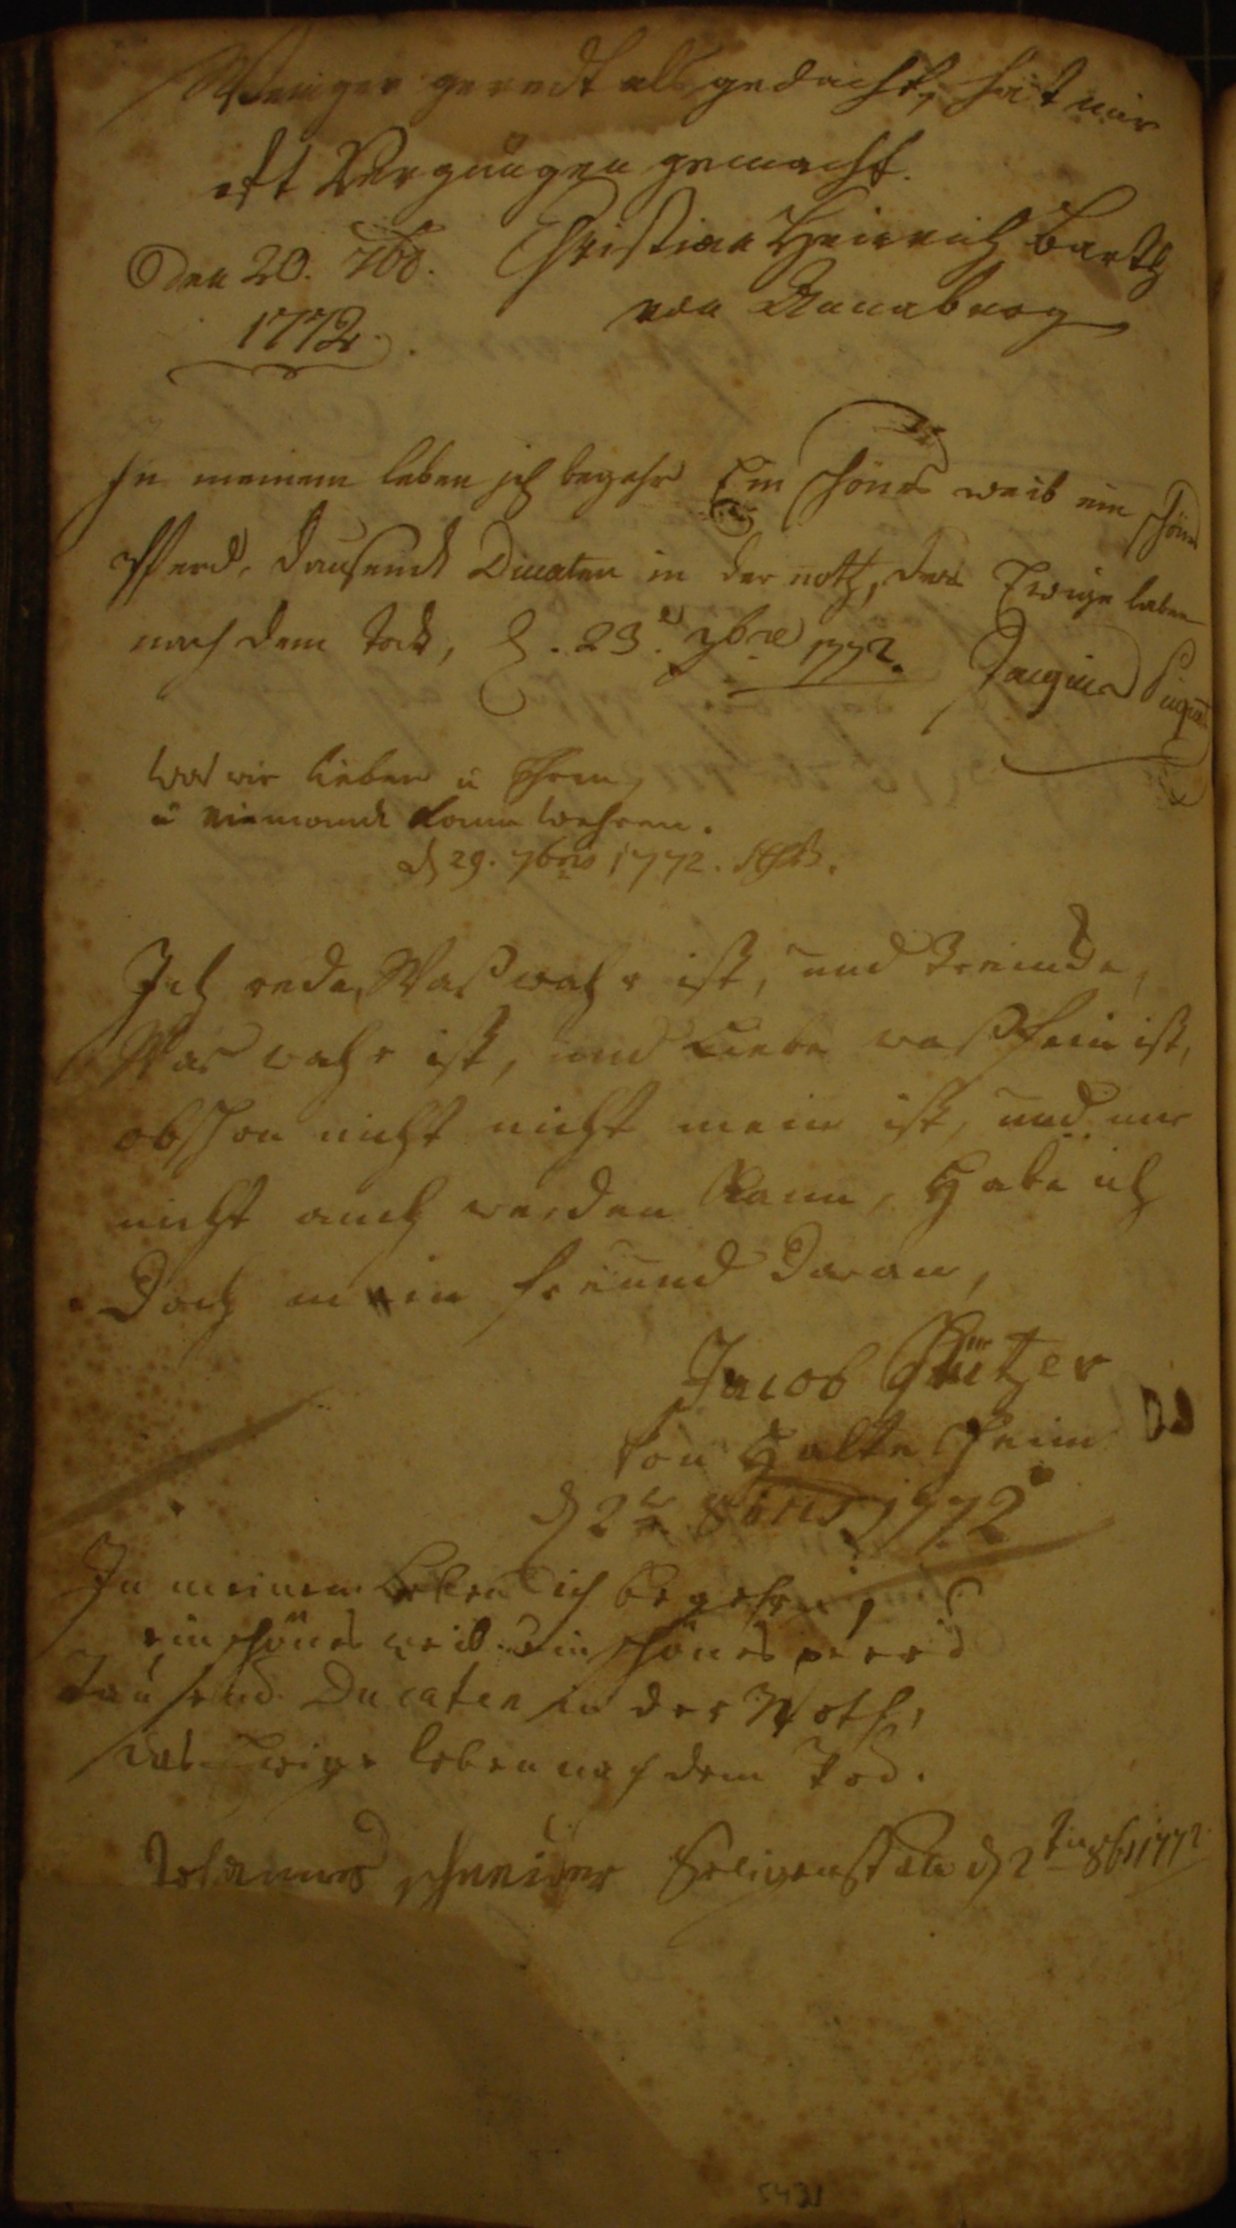 Weniger geredt als gedacht, hat mir
oft Vergnügen gemacht.
Den 20. 7br. Christian Heinrich Barth
1772. von Annaberg
In meinem leben ich begehr Ein schönes weib ein schönes
Pferd, dausendt Ducaten in der noth, das Ewige leben
nach dem todt, d. 23. 7bre 1772.
Was wir lieben u Ehren,
u niemandt kann wehren.
d 29. 7bris 1772.
Ich rede Waß wahr ist, und
Was wahr ist, und Liebe waß fein ist,
obschon nicht nicht mein ist, und mir
nicht auch werden kann, Habe ich
Doch mein freund daran,
Jacob
Von
d 2 8bris 1772
In meinem Leben ich begehre,
ein schönes weib ein schönes peerd
Tausend Ducaten in der Noth,
das Ewige leben nach dem Tod.
Johannes schneider Seligenstadt d 2ten 8br 1772
5421